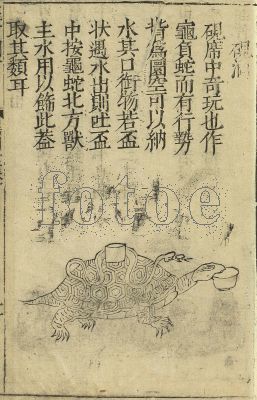 硯席中奇玩也作
龜負蛇而有行勢
背爲圜空可以納
水其口銜物若盃
狀遇水出則吐盃
中按龜蛇北方獸
主水用以飾此葢
取其類耳
fotoe